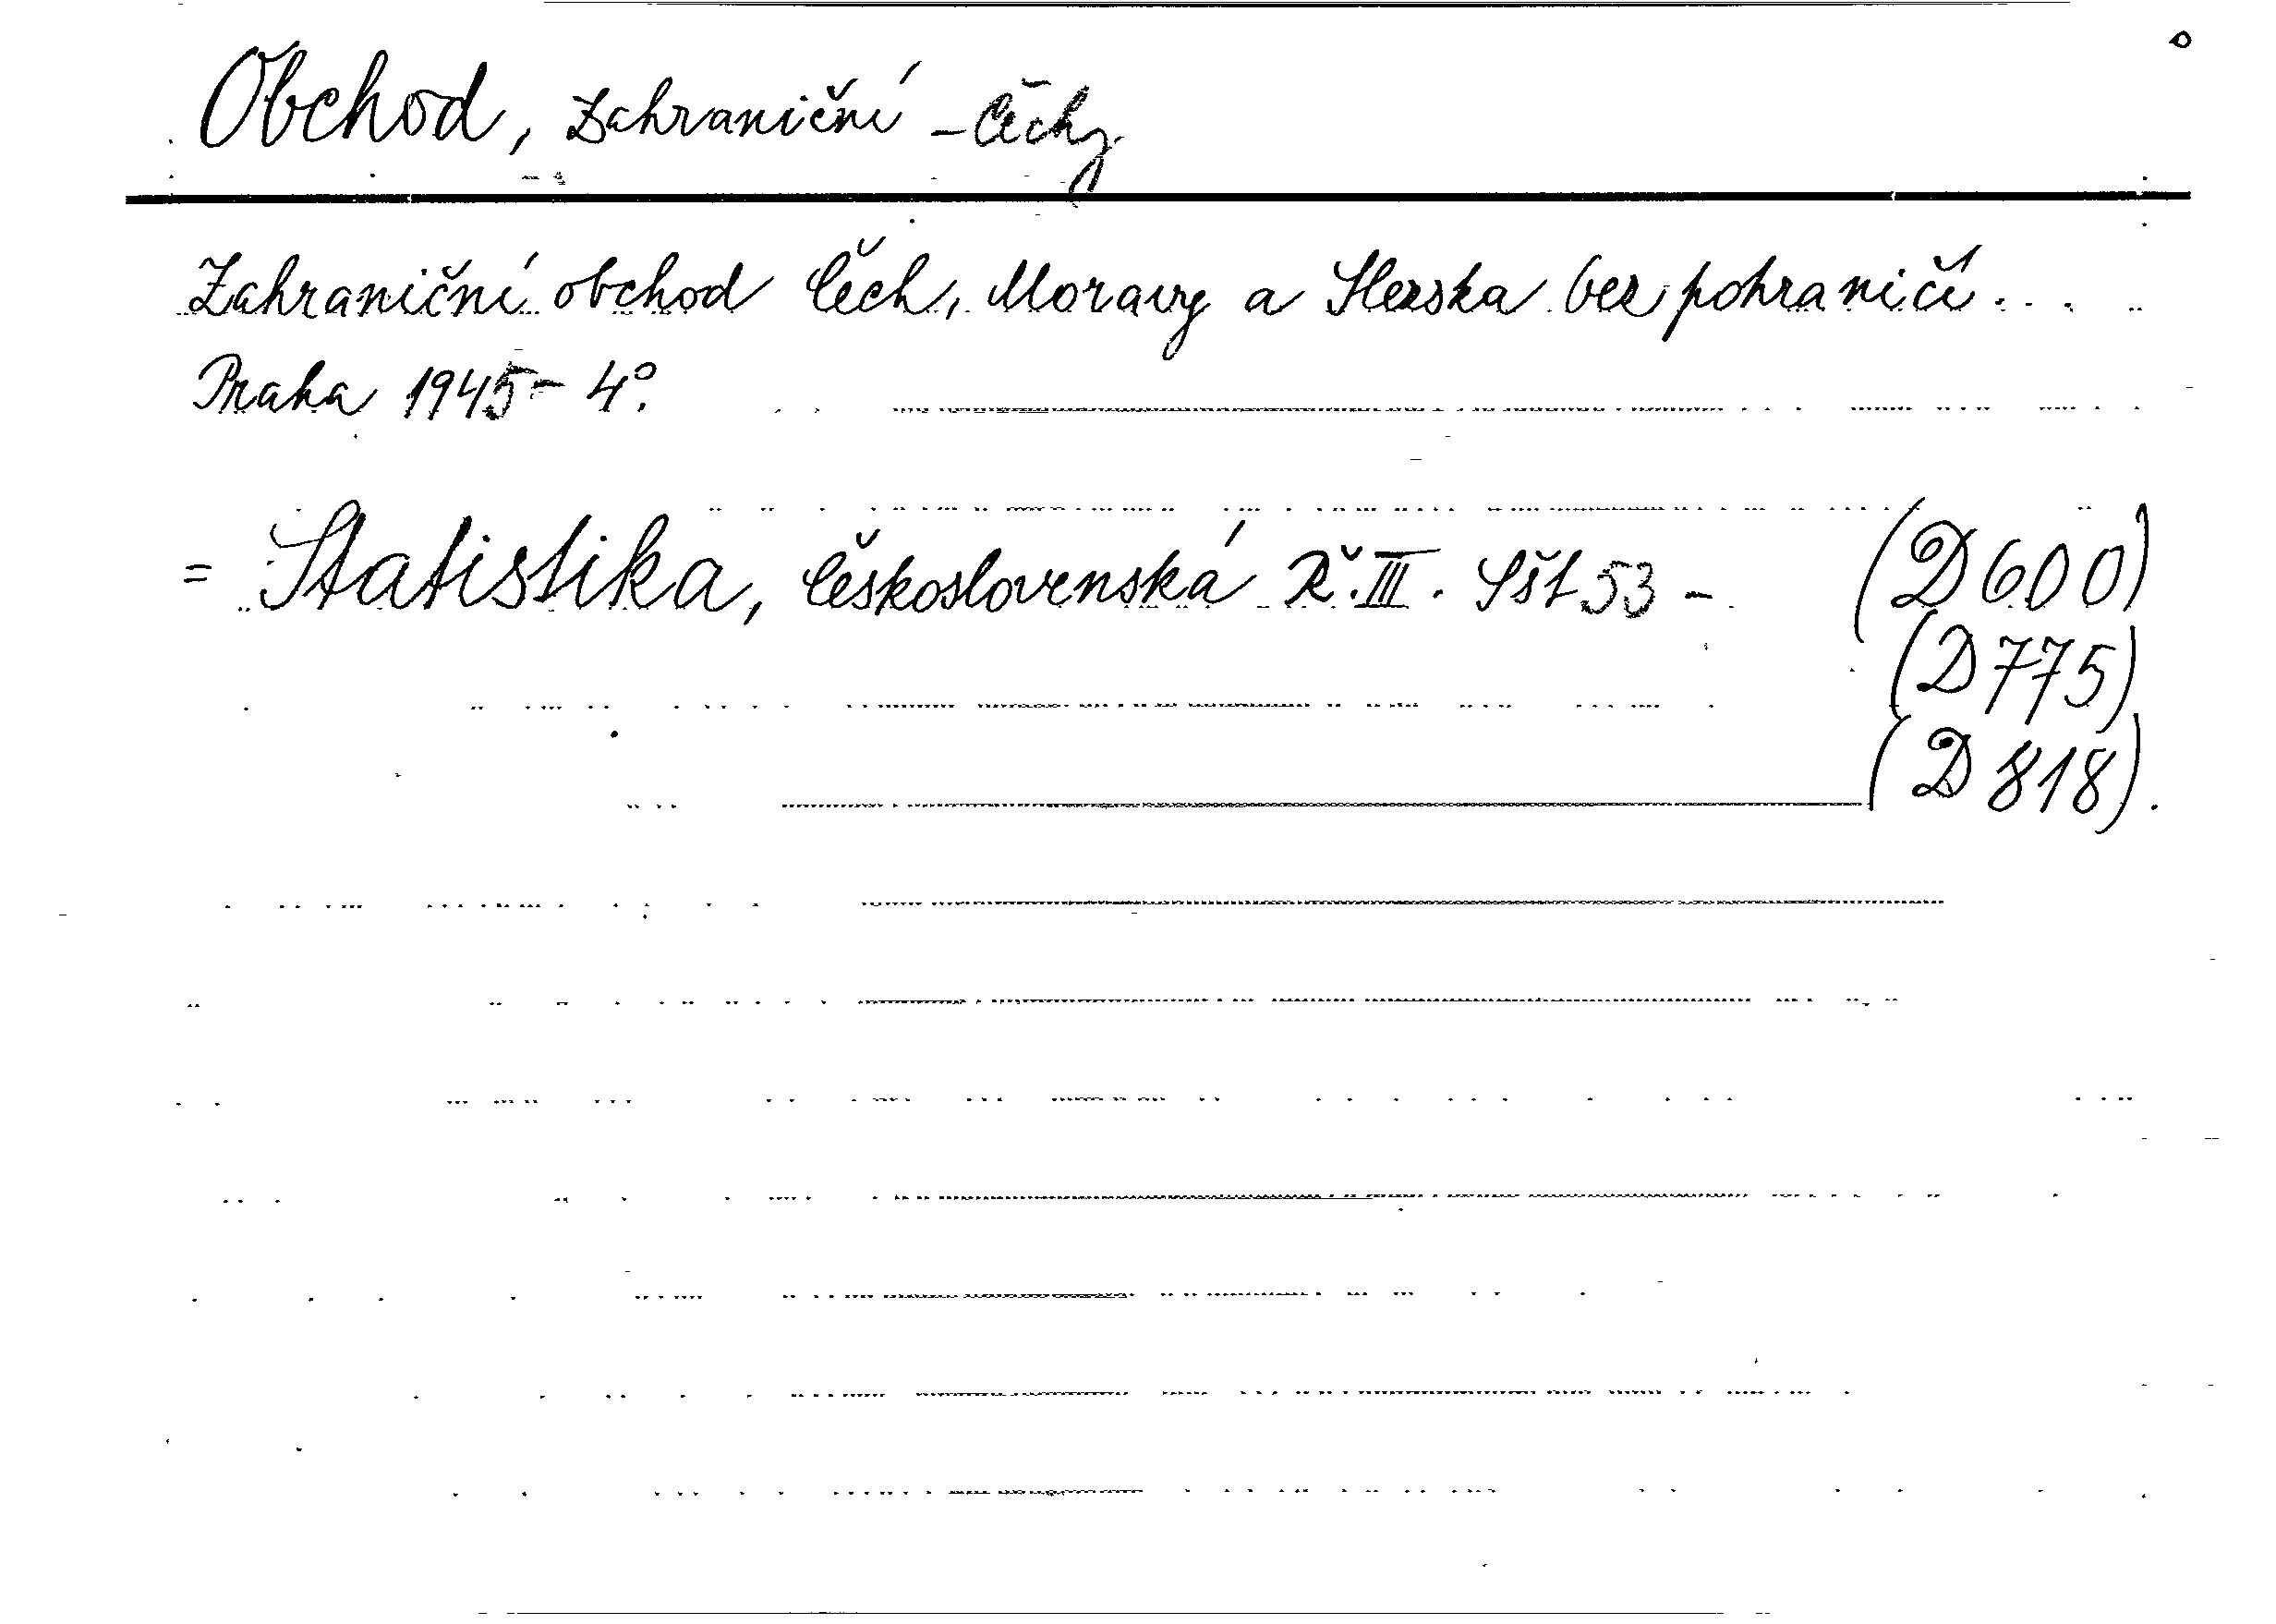 Obchod, zahraniční - Čechy.
Zahraniční obchod Čech, Moravy a Slezska bez pohraničí...
Praha 1945- 4°.
= Statistika, Československá Ř.III. Sšt 53 - (D 600)
(D 775)
(D 818).